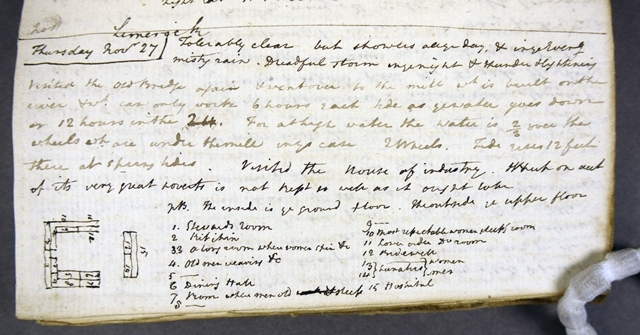 Limerick
Thursday Nov 27 Tolerably clear but showers all ye day, & in ye Eveng
misty rain. Dreadful storm in ye night & thunder & lightning
Visited the Old Bridge again & went over to the mill wch is built on the
river & wch can only work 6 hours each tide as ye water goes down
or 12 hours in the 24. For at high water the water is 2/3 over the
wheels wch are under the mill in ye case 2 Wheels. Tide rises 12 feet
there at Spring tides. Visited the House of industry. Which on acct
of its very great poverty is not kept so well as it ought to be.
NB. The inside is ye ground floor. The outside ye upper floor
1. Stewards room
2 Kitchin
33 A long room where women spin &c
4. Old men weaving &c
5
6 Dining Hall
7 Room where men old sleep
8
9
10 Most respectable women sleep room
11 Lower order Do room
12 Bridewell
13 Lunatics women
14 men
15 Hospital